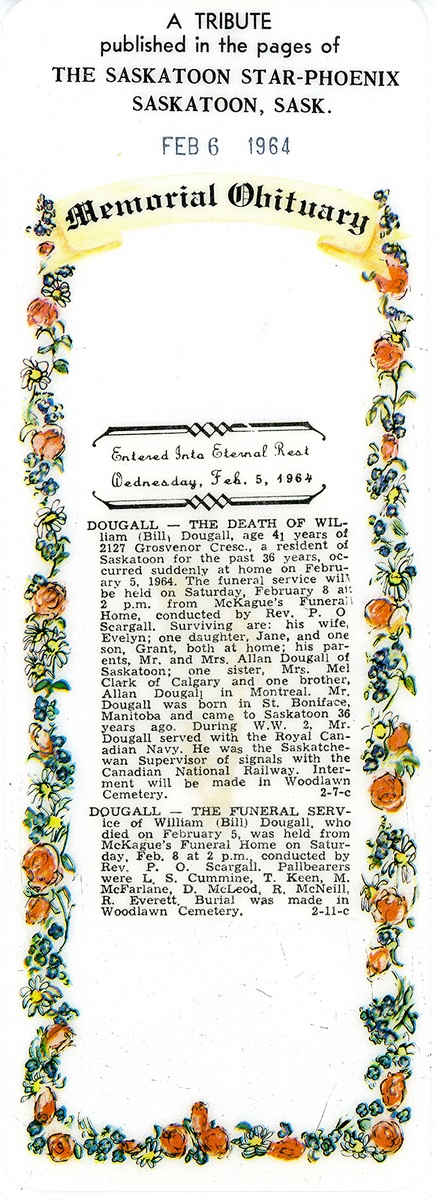 A TRIBUTE
published in the pages of
THE SASKATOON STAR-PHOENIX
SASKATOON, SASK.
FEB 6 1964
Memorial Obituary
Entered Into Eternal Rest
Wednesday, Feb. 5, 1964
DOUGALL — THE DEATH OF WIL-
liam (Bill) Dougall, age 41 years of
2127 Grosvenor Cresc., a resident of
Saskatoon for the past 36 years, oc-
curred suddenly at home on Febru-
ary 5, 1964. The funeral service will
be held on Saturday, February 8 at
2 p.m. from McKague's Funeral
Home, conducted by Rev. P. O
Scargall. Surviving are: his wife,
Evelyn; one daughter, Jane, and one
son, Grant, both at home; his par-
ents, Mr. and Mrs. Allan Dougall of
Saskatoon; one sister, Mrs. Mel
Clark of Calgary and one brother,
Allan Dougall in Montreal. Mr.
Dougall was born in St. Boniface,
Manitoba and came to Saskatoon 36
years ago. During W.W. 2, Mr.
Dougall served with the Royal Can-
adian Navy. He was the Saskatche-
wan Supervisor of signals with the
Canadian National Railway. Inter-
ment will be made in Woodlawn
Cemetery. 2-7-c
DOUGALL — THE FUNERAL SERV-
ice of William (Bill) Dougall, who
died on February 5, was held from
McKague's Funeral Home on Satur-
day, Feb. 8 at 2 p.m., conducted by
Rev. P. O. Scargall. Pallbearers
were L. S. Cummine, T. Keen, M.
McFarlane, D. McLeod, R. McNeill,
R. Everett. Burial was made in
Woodlawn Cemetery. 2-11-c